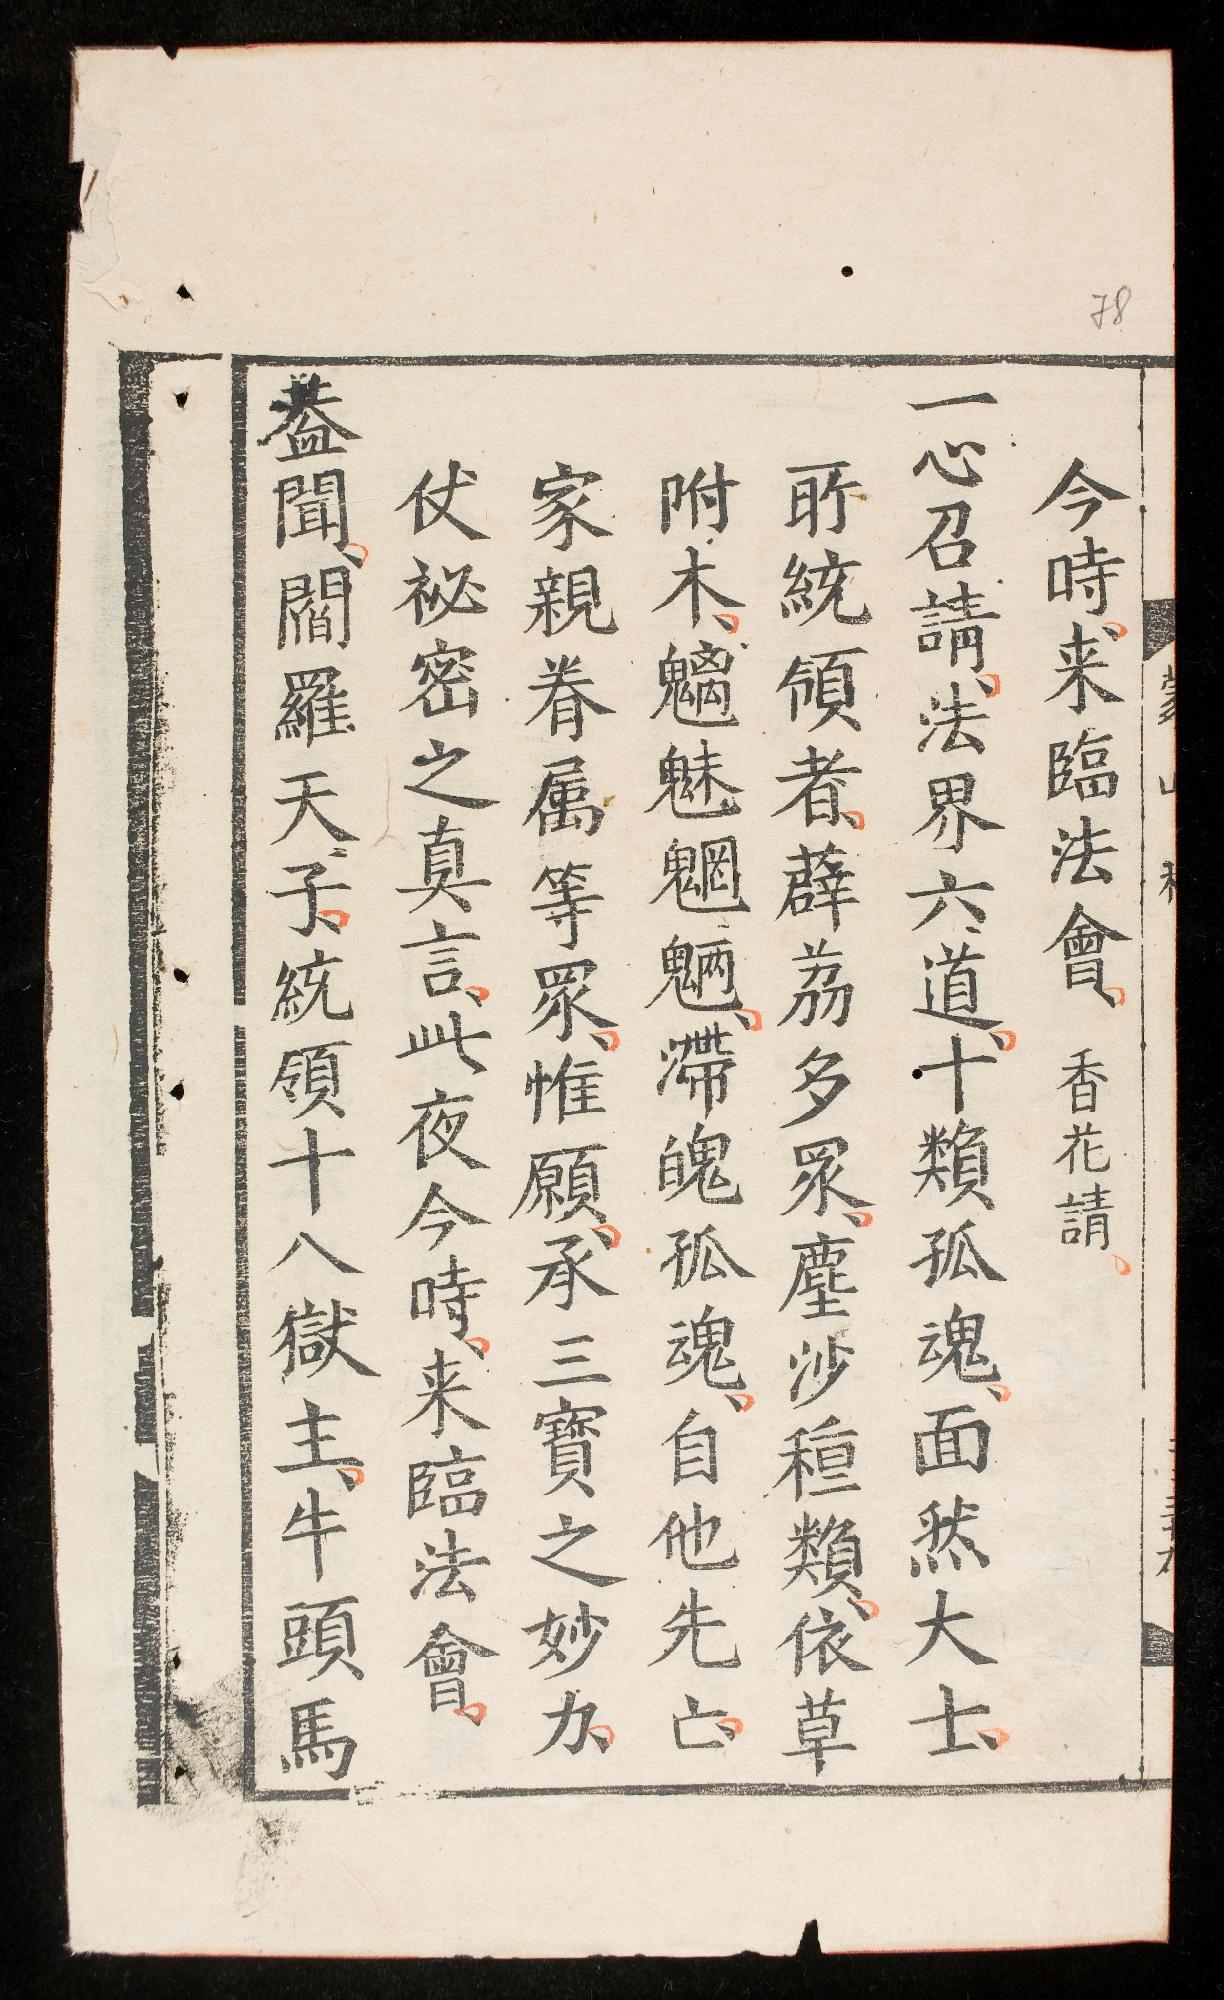 78
今時、来臨法會、香花請
一心召請、法界六道、十類孤魂、面然大士、
所統領者、薜荔多眾、塵沙種類、依草
附木、魑魅魍魎、滯魄孤魂、自他先亡、
家親眷属等眾、惟願、承三寶之妙力、
仗祕密之真言、此夜今時、来臨法會、
葢聞、閻羅天子、統領十八獄主、牛頭馬